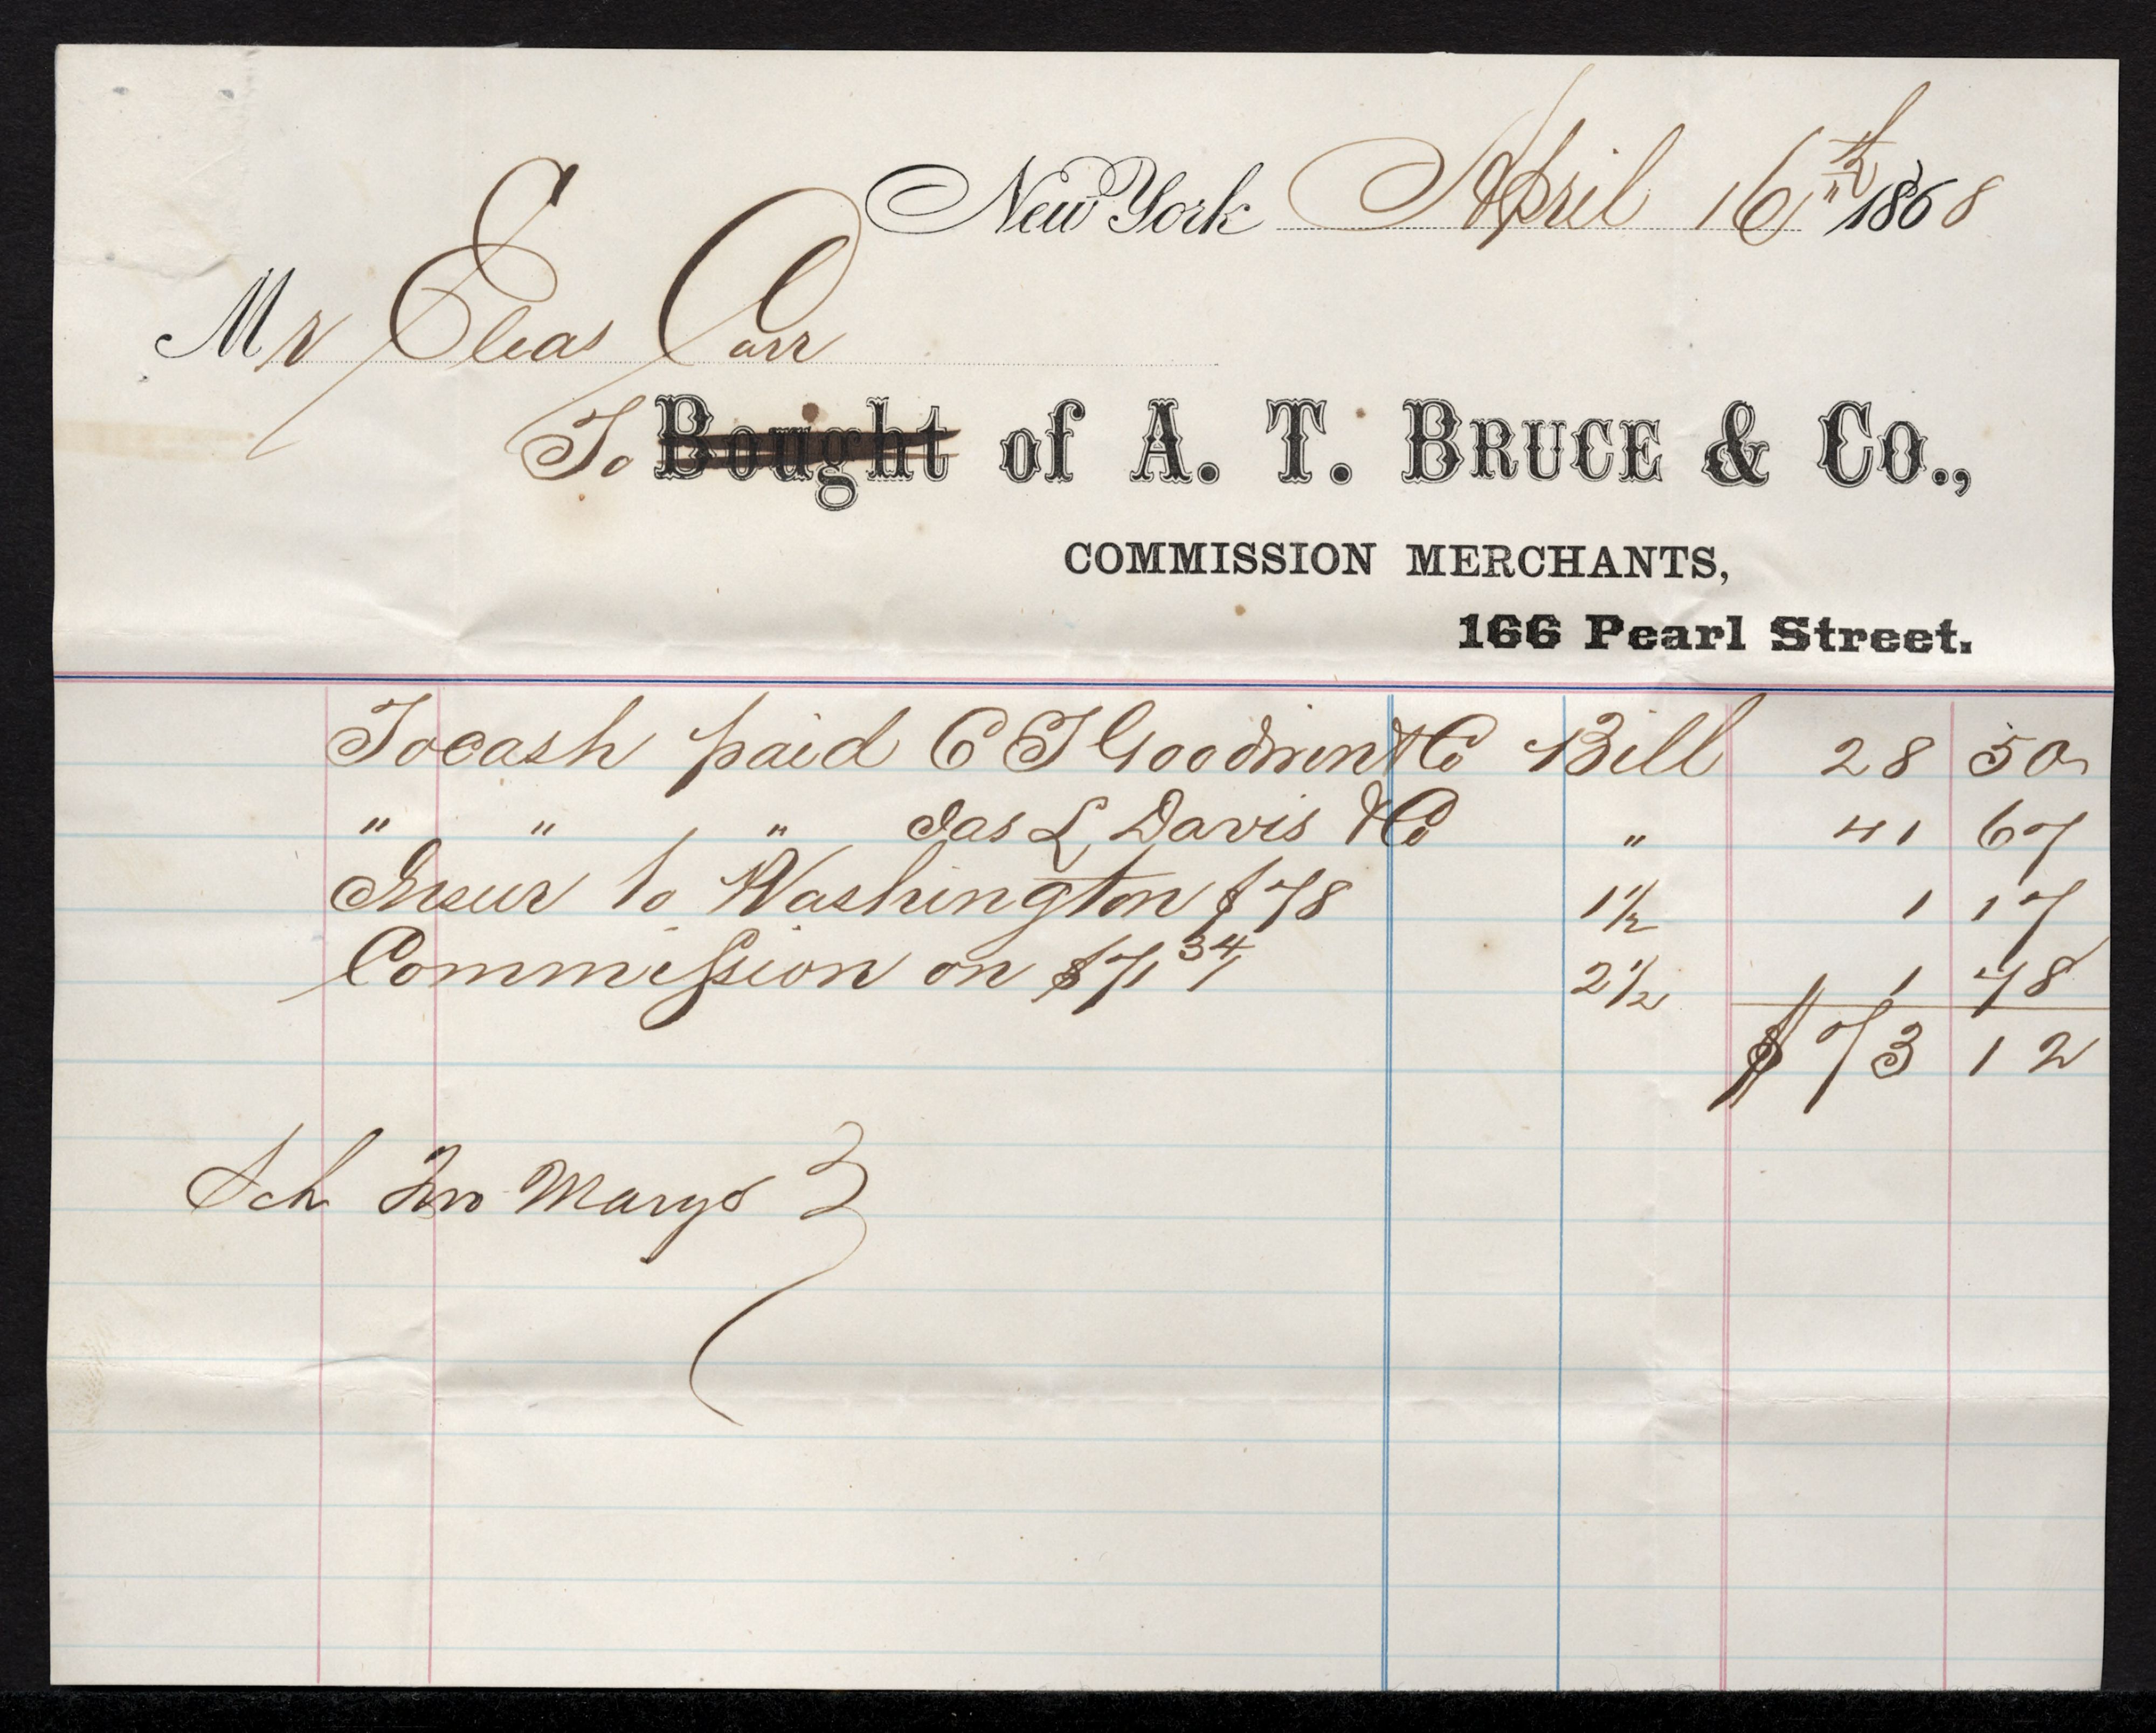 New York April 16th 1868
Mr Elias Carr
To Bought of A. T. BRUCE & CO.,
COMMISSION MERCHANTS,
166 Pearl Street.
To cash paid C T Goodwin & Co Bill 28 50
" " " Jas L Davis & Co " 41 67
Insur to Washington $78 1½ 1 17
Commission on $71 34 2½ 1 78
$73 12
Sch Marys